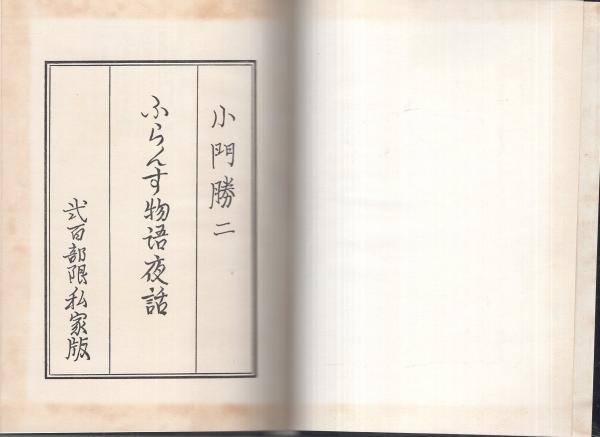 小門勝二
ふらんす物語夜話
弐百部限私家版